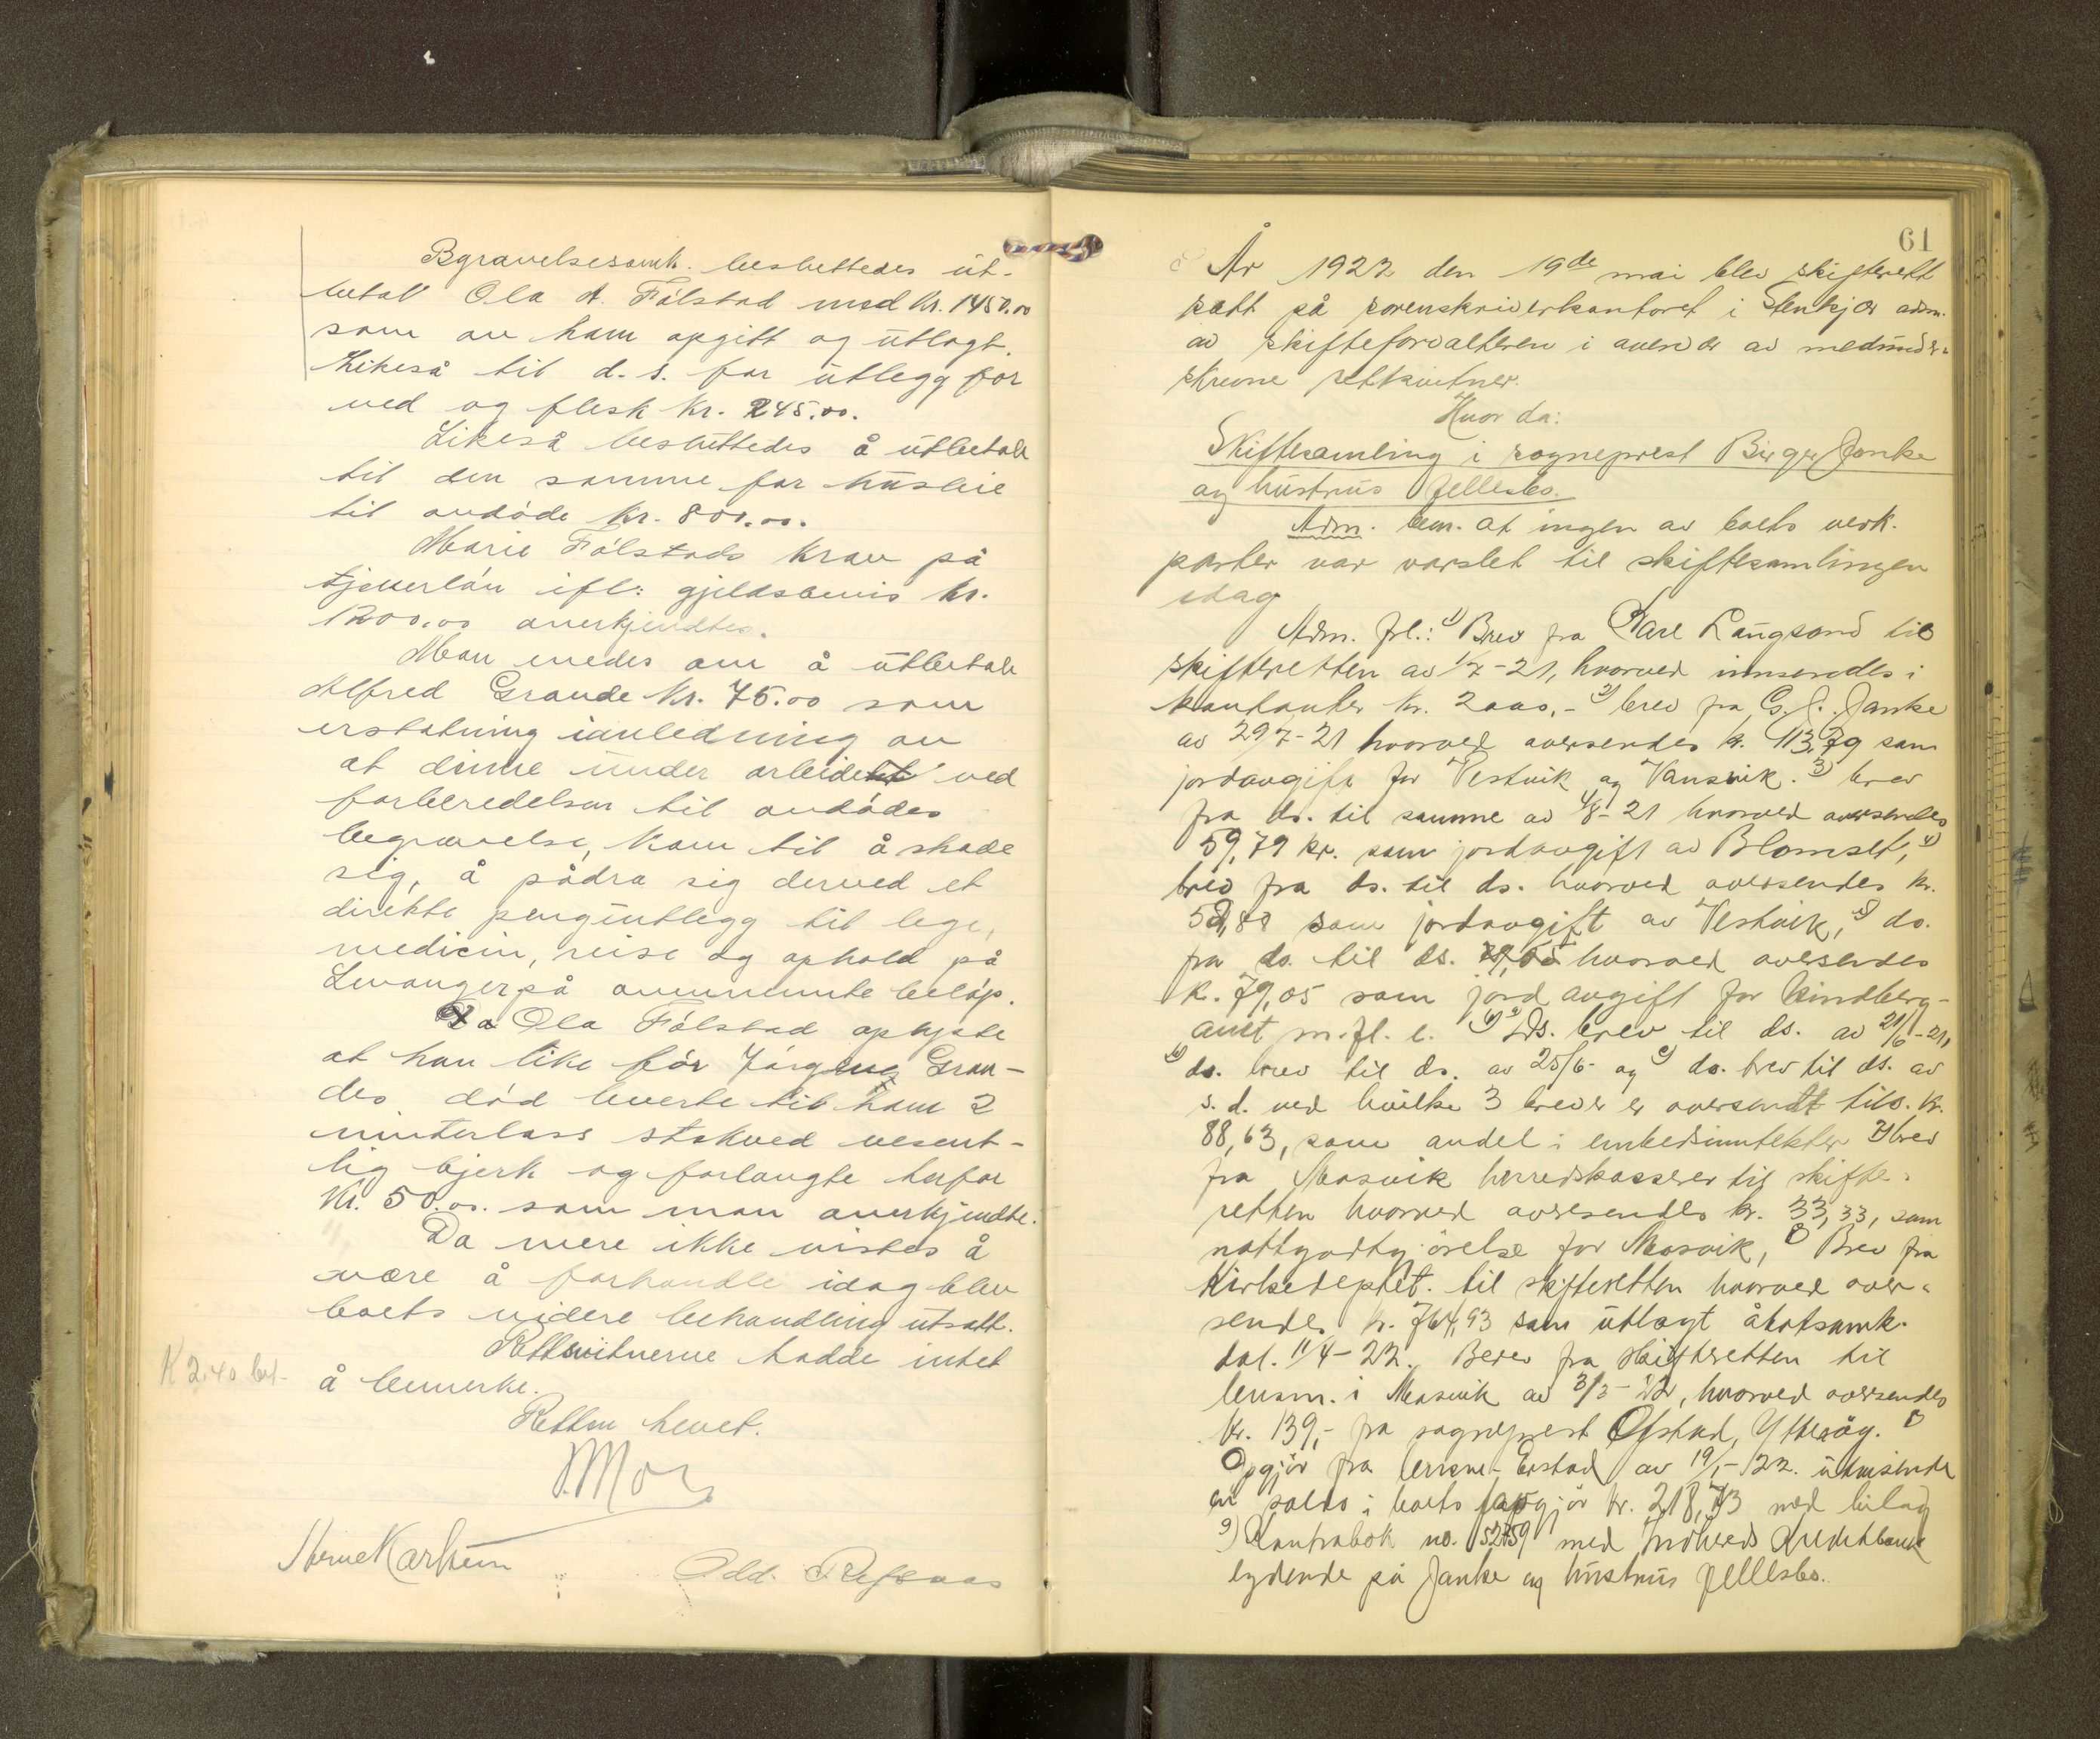 Bgravelsesomk. besluttedes út-
betal Ola A. Fólstad med kr. 1450.00
som av ham opgitt og útlagt.
Likeså til d. s. for útlegg for
ved og flesk kr. 245.00.
Likeså besluttedes å útbetale
til den samme for húsleie
til avdöde kr. 800.00.
Marie Fólstads krav på
tjenerlón ifl: gjeldsbevis kr.
1200.00 anerkjendtes.
Man enedes om å útbetale
Alfred Grande kr. 75.00 som
erstatning ianledning av
at denne únder arbeidet ved
forberedelsen til avdödes
begravelse, kom til å skade
sig, å pådra sig derved et
direkte pengeútlegg til lege,
medicin, reise og ophold på
Levanger på ovennevnte belóp.
Da Ola Fólstad oplyste
at han like fór Jórgine Gran-
des död leverte til ham 2
vinterlass stokved vesent-
lig bjerk og forlangte herfor
Kr. 50.00. som man anerkjendte.
Da mere ikke vistes å
være å forhandle idag blev
boets videre behandling útsatt.
Rettsvitnerne hadde intet
K 2.40 bet-
å bemerke.
Retten hevet.
Odd. Refsaas
61
År 1922 den 19de mai blev skifterett
satt på sorenskriverkontoret i Stenkjær adm.
av skifteforvalteren i overvær av medúnder-
skrevne rettsvitner.
Hvor da:
Skiftesamling i sogneprest Birger Janke
og hústrús fellesbo.
Adm. bem. at ingen av boets vedk.
parter var varslet til skiftesamlingen
idag
Adm. frl.: 1) Brev fra Karl Langsand til
skifteretten av 1/7-21, hvorved innsendtes i
kontanter kr. 2000,- 2) brev fra G. J. Janke
av 29 7-21 hvorved oversendes kr. 113,79 som
jordavgift for Vestvik og Vansvik. 3) brev
fra ds. til samme av 4/8-21 hvorved oversendes
59,79 kr. som jordavgift av Blomset, 4)
brev fra ds. til ds. hvorved oversendes kr.
52,88 som jordavgift av Vestvik, 5) do.
fra ds. til ds. hvorved oversendes
k. 79,05 som jord avgift for Lindberg-
aunt m.fl. e. Ds. brev til ds. av 21/6-21,
ds. brev til ds. av 25/6- og do. brev til ds. av
s. d. ved hvilke 3 brever er oversendt tils. kr.
88,63, som andel i embedsinntekter 7) brev
fra Mosvik herredskasserer til skifte-
retten hvorved oversendes kr. 33,33, som
nattgodtgjörelse for Mosvik, Brev fra
Kirkedeptet. til skifteretten hvorved over-
sendes kr. 764,93 som útlagt åbotsomk.
dat. 11/4-22. Brev fra skifteretten til
lensm. i Mosvik av 3/3-22, hvorved oversendes
kr. 139,- fra sogneprest Ofstad, Ytteröy.
Opgjör fra lensm. av 19/5-22. útvisende
en saldo i boets favör kr. 218,73 med bilag
9) Kontrabok no. 52759 med Indherreds Kreditbank
lydende på Janke og hústrús fellesbo.